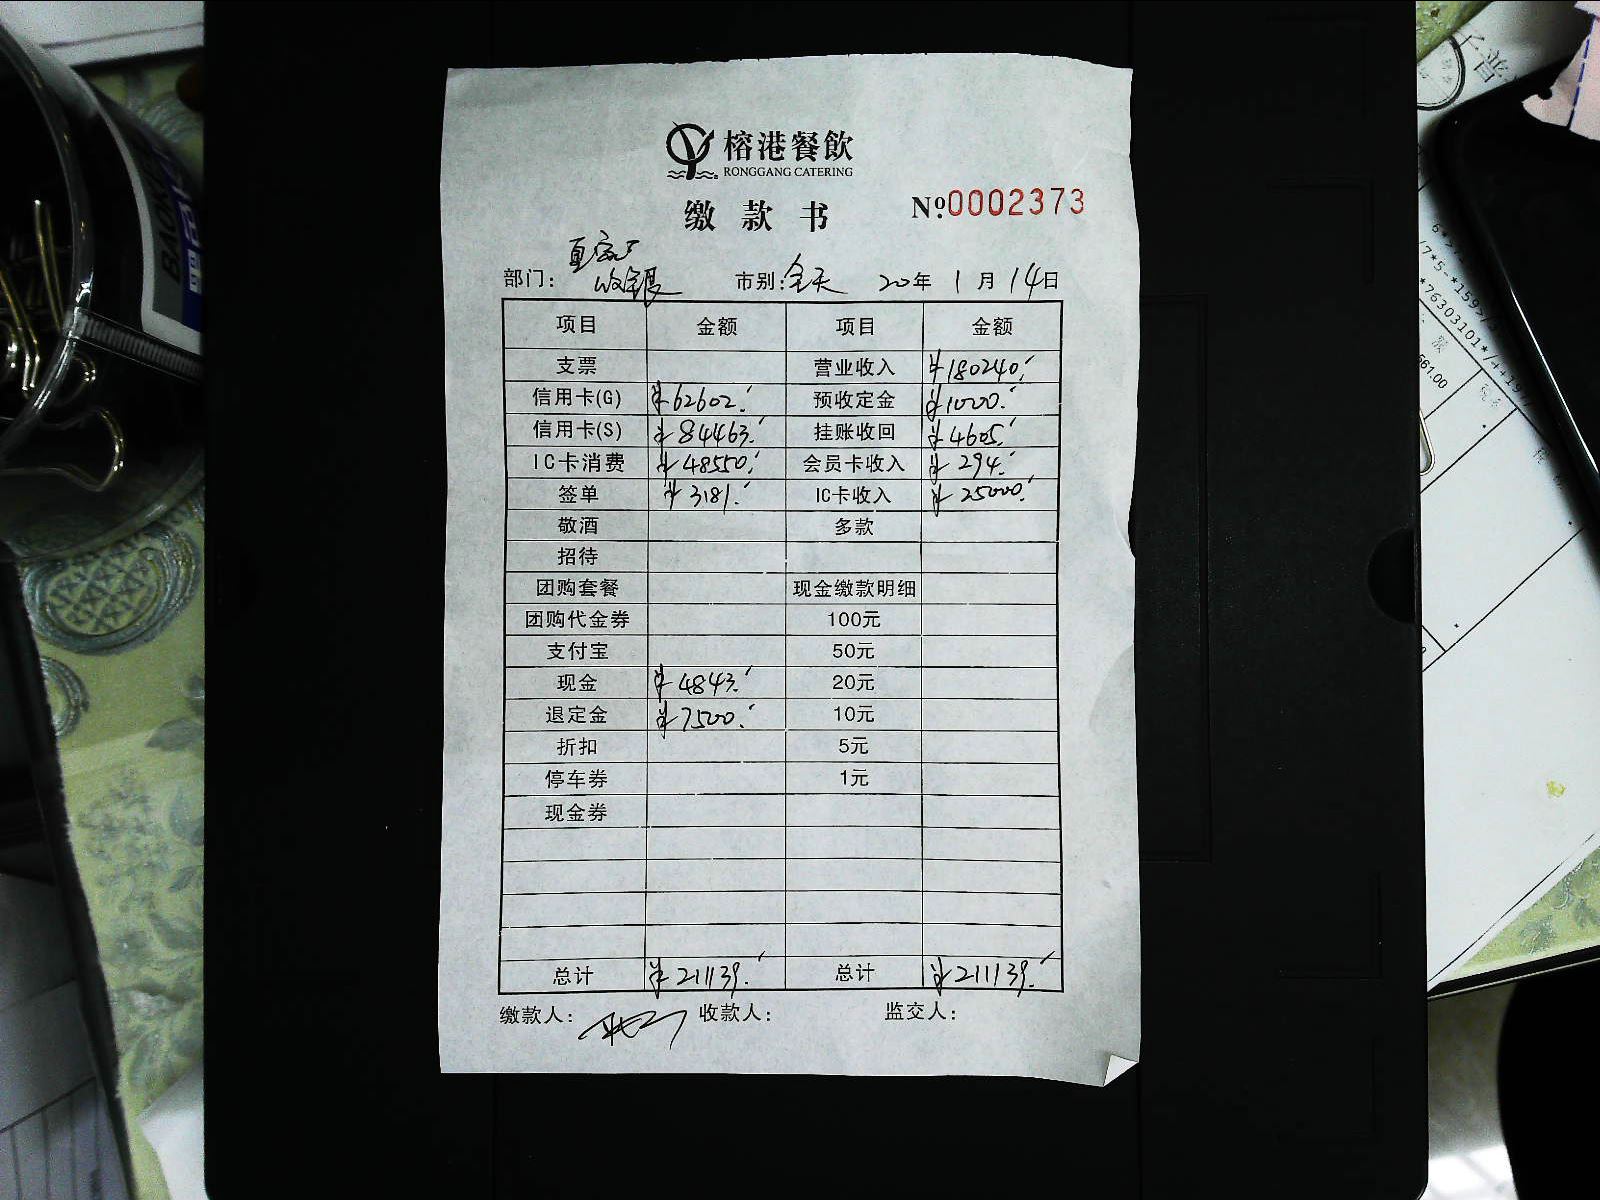 榕港餐飲
RONGGANG CATERING
缴款书 Nº.0002373
部门: 收银 市别:全天 20年1月14日
项目 金额 项目 金额
支票 营业收入 ¥180240.
信用卡(G) ¥62602. 预收定金 ¥1000.
信用卡(S) ¥84463. 挂账收回 ¥4605.
IC卡消费 ¥48550. 会员卡收入 ¥294.
签单 ¥3181. IC卡收入 ¥25000.
敬酒 多款
招待
团购套餐 现金缴款明细
团购代金券 100元
支付宝 50元
现金 ¥4843. 20元
退定金 ¥7500. 10元
折扣 5元
停车券 1元
现金券
总计 ¥211139. 总计 ¥211139.
缴款人: 收款人: 监交人:
BAOKE
*76303101*/
561.00